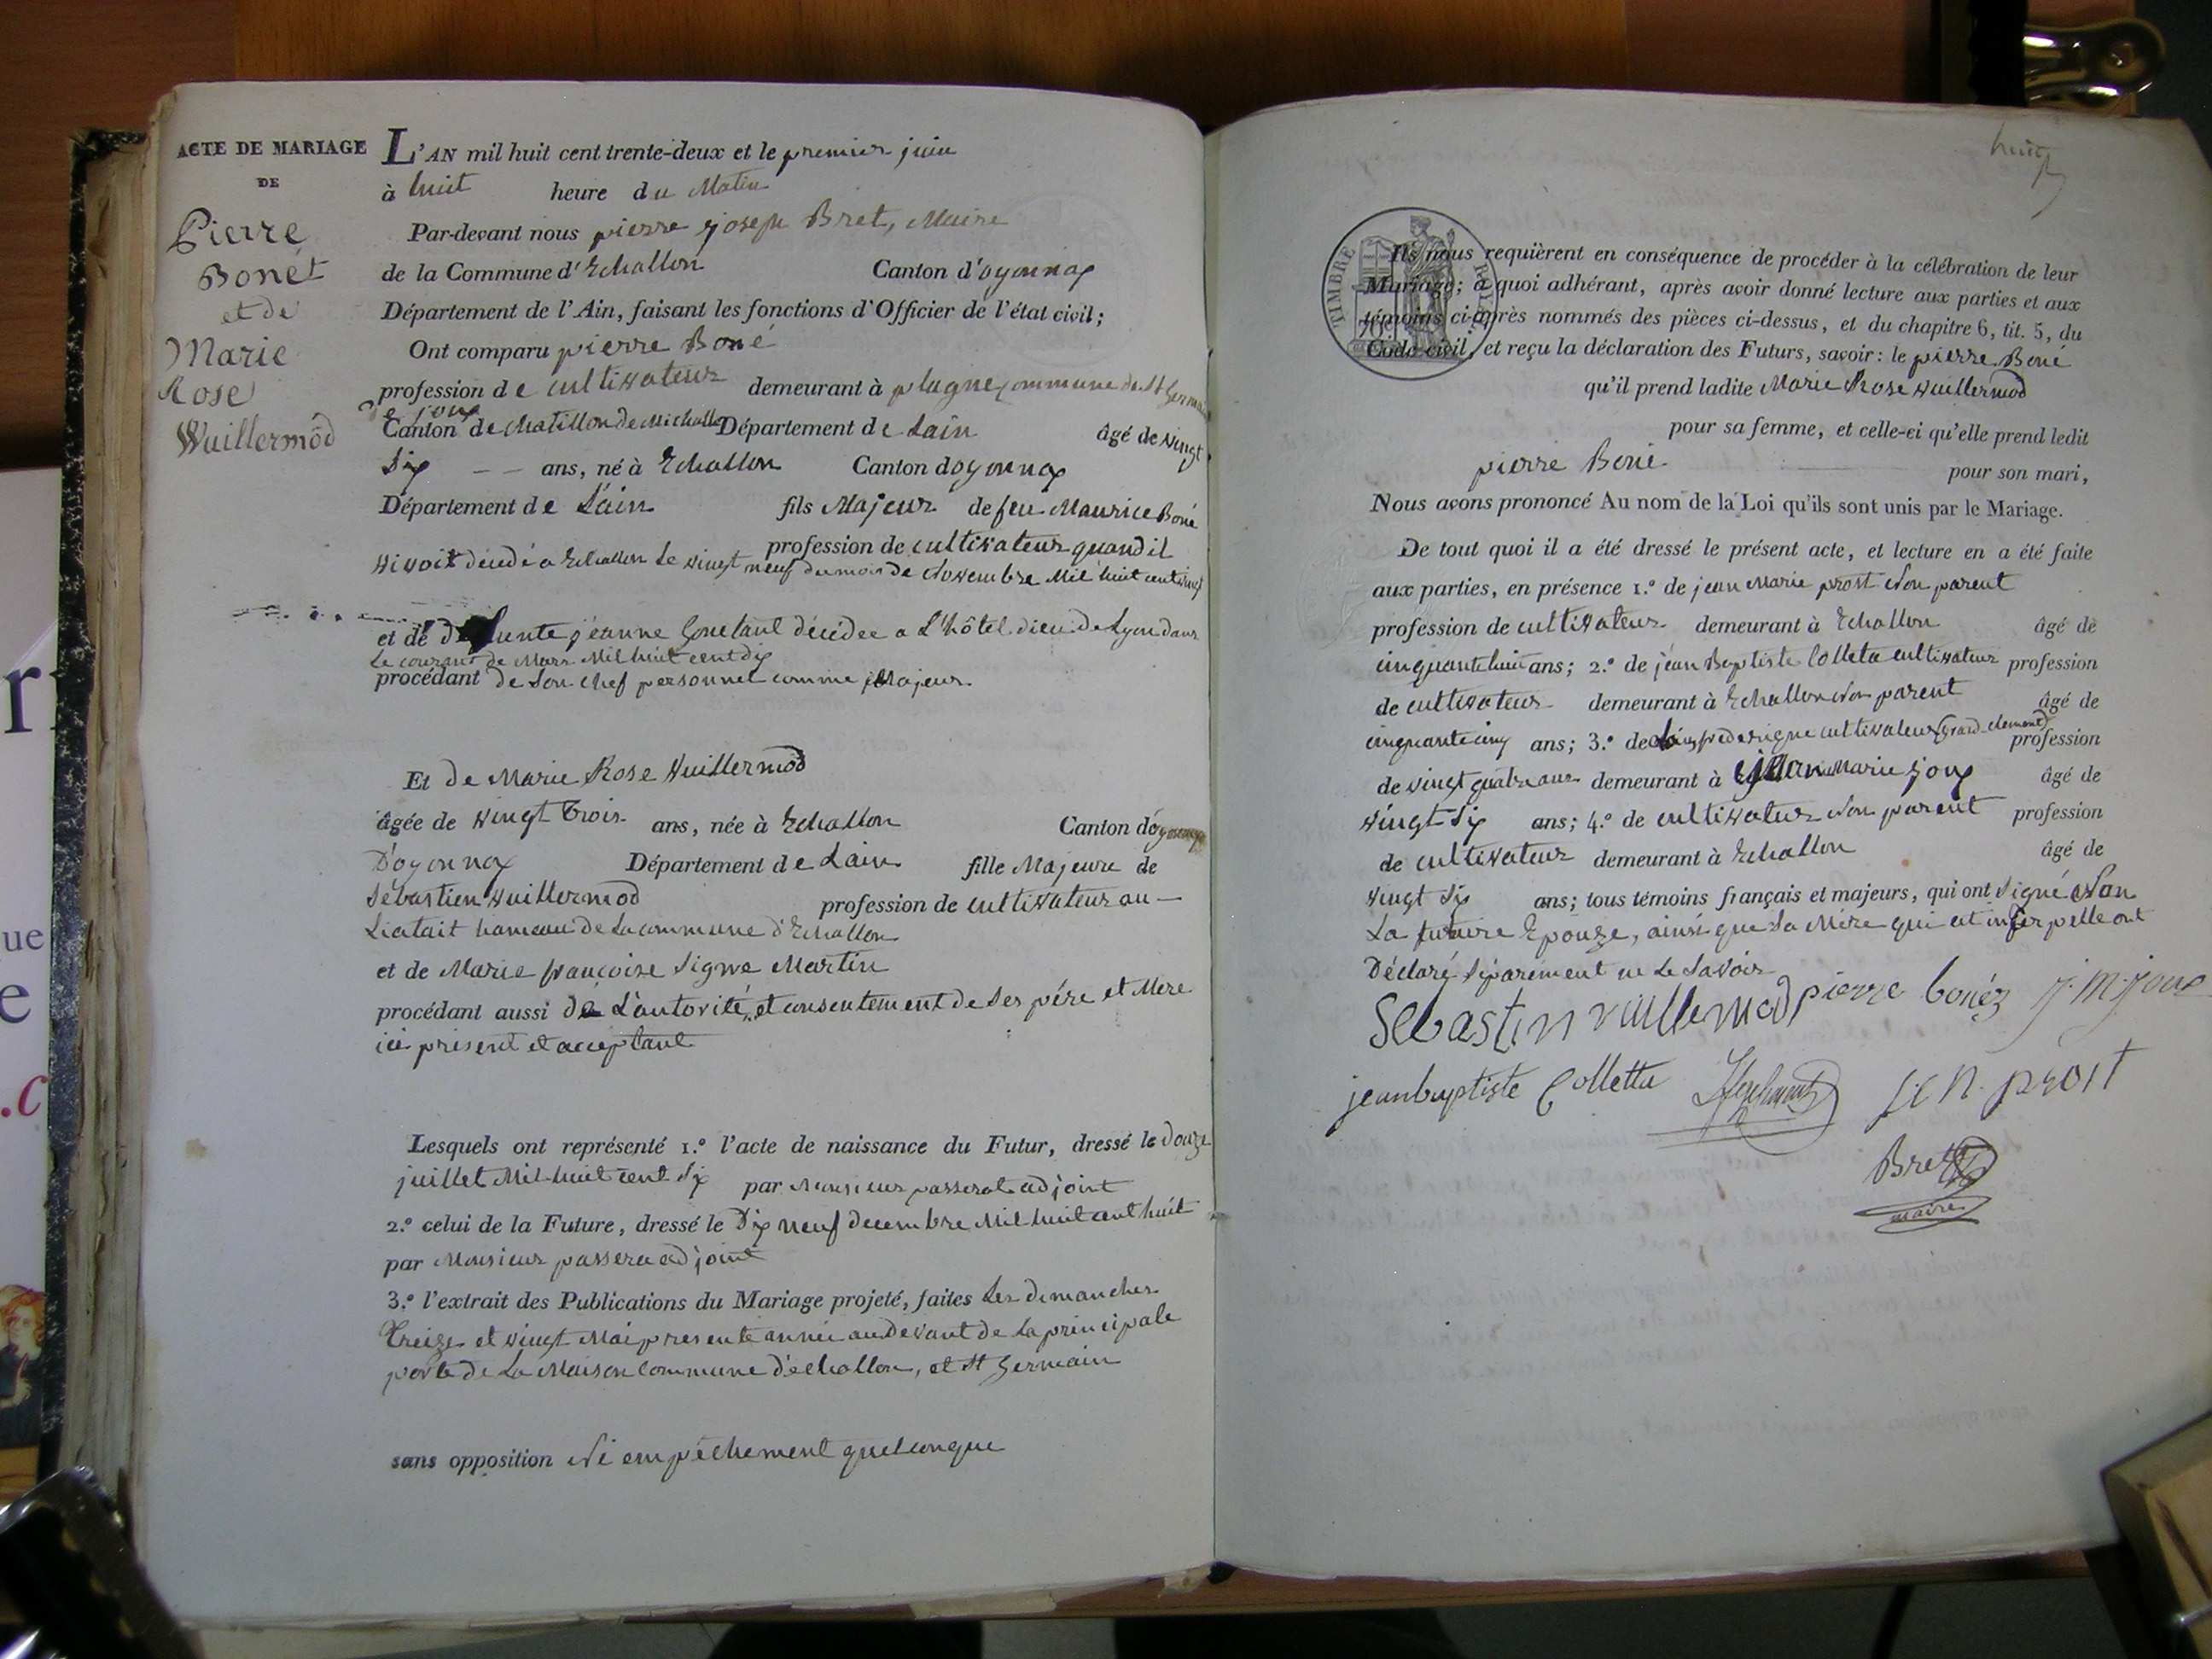 ACTE DE MARIAGE
DE
Pierre
Bonét
et de
Marie
Rose
Wuillermôd
L'AN mil huit cent trente-deux et le premier juin
à huit heure du Matin
Par-devant nous pierre joseph Bret, Maire
de la Commune d'Echallon Canton d'oyonnax
Département de l'Ain, faisant les fonctions d'Officier de l'état civil;
Ont comparu pierre Boné
profession de cultivateur demeurant à plagne commune de St Germain
de joux
Canton de chatillon de Michaille Département de Lain âgé de vingt
Six -- ans, né à Echallon Canton doyonnax
Département de Lain fils Majeur de feu Maurice Boné
profession de cultivateur quand il
vivoit décédé a Echallon le vingt neuf du mois de Novembre Mil huit cent
et de jeanne décédée a L'hôtel dieu de Lyon dans
Le courant de Mars Mil huit cent dix
procédant de Son chef personnel comme Majeur
Et de Marie Rose Vuillermod
âgée de vingt trois ans, née à Echallon Canton
D'oyonnax Département de Lain fille Majeure de
Sébastien Vuillermod profession de cultivateur au
hameau de La commune d'Echallon
et de Marie françoise Signe Martin
procédant aussi de L'autorité, et consentement de Ses pére et Mere
ici présent et acceptant
Lesquels ont représenté 1.º l'acte de naissance du Futur, dressé le douze
juillet Mil huit cent Six par Monsieur passerat adjoint
2.º celui de la Future, dressé le Dix neuf decembre Mil huit cent huit
par Monsieur passera adjoint
3.º l'extrait des Publications du Mariage projeté, faites Les dimanches
Treize et vingt Mai presente année au Devant de La principale
porte de La Maison commune d'échallon, et St Germain
sans opposition Ni empêchement quelconque
huit
TIMBRE ROYAL
Ils nous requièrent en conséquence de procéder à la célébration de leur
Mariage; à quoi adhérant, après avoir donné lecture aux parties et aux
témoins ci-après nommés des pièces ci-dessus, et du chapitre 6, tit. 5, du
Code civil, et reçu la déclaration des Futurs, savoir: le pierre Boné
qu'il prend ladite Marie Rose Vuillermod
pour sa femme, et celle-ci qu'elle prend ledit
pierre Boné pour son mari,
Nous avons prononcé Au nom de la Loi qu'ils sont unis par le Mariage.
De tout quoi il a été dressé le présent acte, et lecture en a été faite
aux parties, en présence 1.º de jean Marie prost Non parent
profession de cultivateur demeurant à Echallon âgé de
cinquante huit ans; 2.º de jean Baptiste Colleta cultivateur profession
de cultivateur demeurant à Echallon Non parent âgé de
cinquante cinq ans; 3.º de cultivateur Grand clement profession
de vingt quatre ans demeurant à jean Marie joux âgé de
vingt Six ans; 4.º de cultivateur Non parent profession
de cultivateur demeurant à Echallon âgé de
vingt Six ans; tous témoins français et majeurs, qui ont Signé Non
La future Epouze, ainsi que Sa Mére qui ont
Déclaré Séparement ne Le Savoir
Sebastien vuillermod pierre bonéz J. M. Joux
jean baptiste Colletta prost
Bret
maire